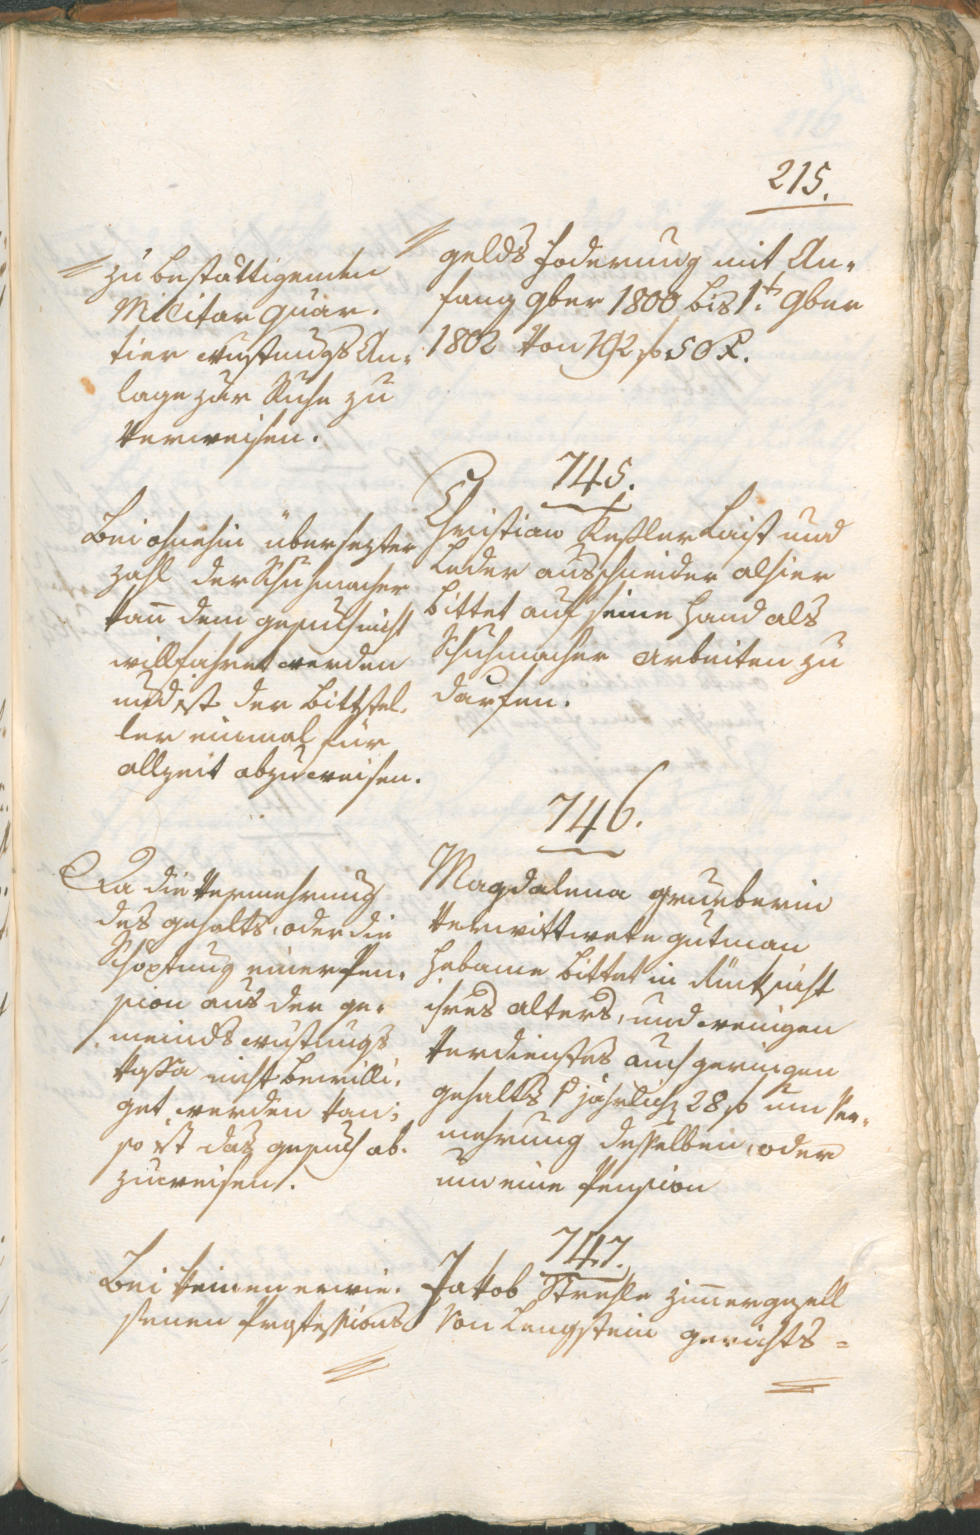 215.
zu bestättigenden
Militar Quar-
tier Rustungs An-
lage zur Ruhe zu
verweisen.
gelds Foderung mit An-
fang 9ber 1800 bis 1t. 9ber
1802 von 192 f 50 x.
745.
Bei ohnehin übersezter
zahl der Schuhmacher
kan̄ dem gesuch nicht
willfahret werden
und ist der Bittstel-
ler einmal für
allzeit abzuweisen.
Christian Keßler Laist und
Leder ausschneider alhier
bittet auf seine Hand als
Schuhmacher arbeiten zu
därfen.
746.
Da die Vermehrung
des gehalts, oder die
Schöpfung einer Pen-
sion aus der ge-
meinds Rustungs
Kassa nicht bewilli-
get werden kan;
so ist das gesuch ab-
zuweisen.
Magdalena Grueberin
verwittwete Gutman
Hebame bittet in Rücksicht
ihres alters, und wenigen
Verdienstes auch geringen
gehalts p jährlich 28 f um Ver-
mehrung desselben, oder
um eine Pension
747.
Bei keinen erwie-
senen Profesions
Jakob Strehle Zim̄ergesell
von Lengstein gerichts =